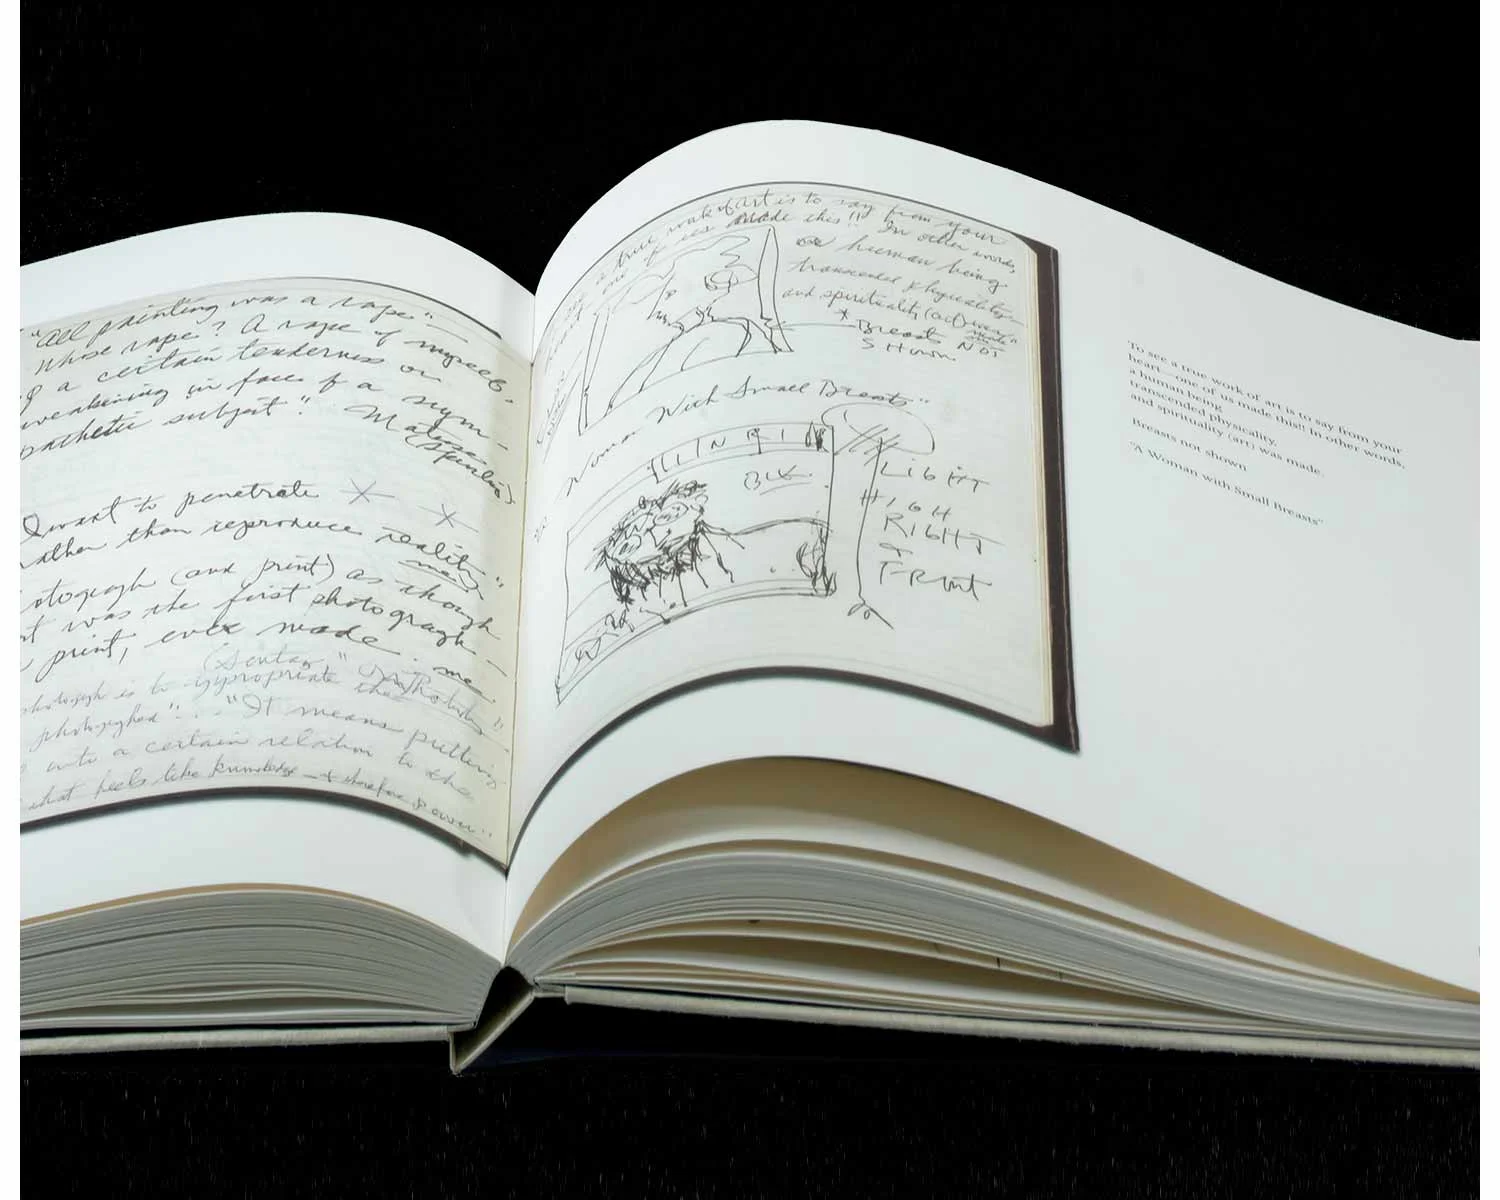 "All painting was a rape"—
Whose rape? A rape of myself.
of a certain tenderness or
weakening in face of a sym-
pathetic subject". Malraux
I want to penetrate
rather than reproduce reality"
me
photograph (and print) as though
it was the first photograph—
print, ever made. me
(Sontag "On Photo
photograph is to appropriate the
photographed"... "It means putting
into a certain relation to the
that feels like knowledge — & therefore power"
a true work of art is to say from your
one of us made this!! In other words,
a human being
transcended physicality
and spirituality (art) was made"
* Breasts NOT
Shown
Woman With Small Breasts"
LIGHT
HIGH
RIGHT
&
FRONT
To see a true work of art is to say from your
heart—one of us made this! In other words,
a human being
transcended physicality,
and spirituality (art) was made.
Breasts not shown
"A Woman with Small Breasts"